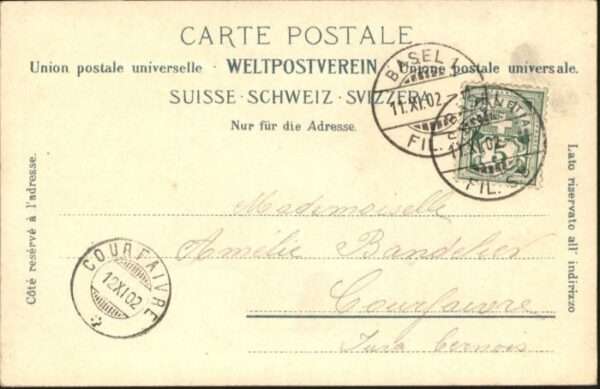 CARTE POSTALE
Union postale universelle · WELTPOSTVEREIN · Unione postale universale.
SUISSE · SCHWEIZ · SVIZZERA
Nur für die Adresse.
Côté resérvé à l'adresse.
Lato riservato all' indirizzo
BASEL 1
11.XI.02
FIL. S
11.XI.02
FIL. S
5
COURFAIVRE
12.XI.02
Mademoiselle
Amélie Bandelier
Courfaivre
Jura bernois